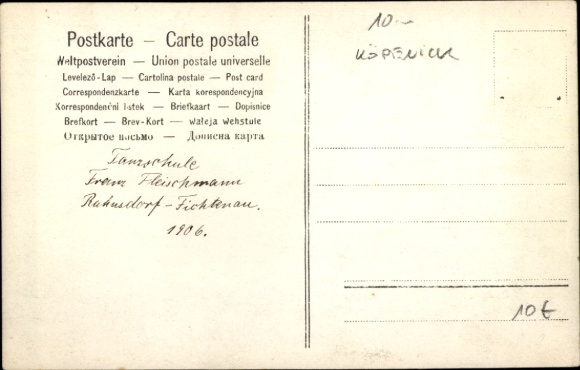 Postkarte — Carte postale
Weltpostverein — Union postale universelle
Levelező-Lap — Cartolina postale — Post card
Correspondenzkarte — Karta korespondencyjna
Korrespondenční lístek — Briefkaart — Dopisnice
Brefkort — Brev-Kort — Waleja Wehstule
Открытое письмо — Дописна карта
Tanzschule
Franz Fleischmann
Rahnsdorf-Fichtenau.
1906.
10.-
KÖPENICK
10€